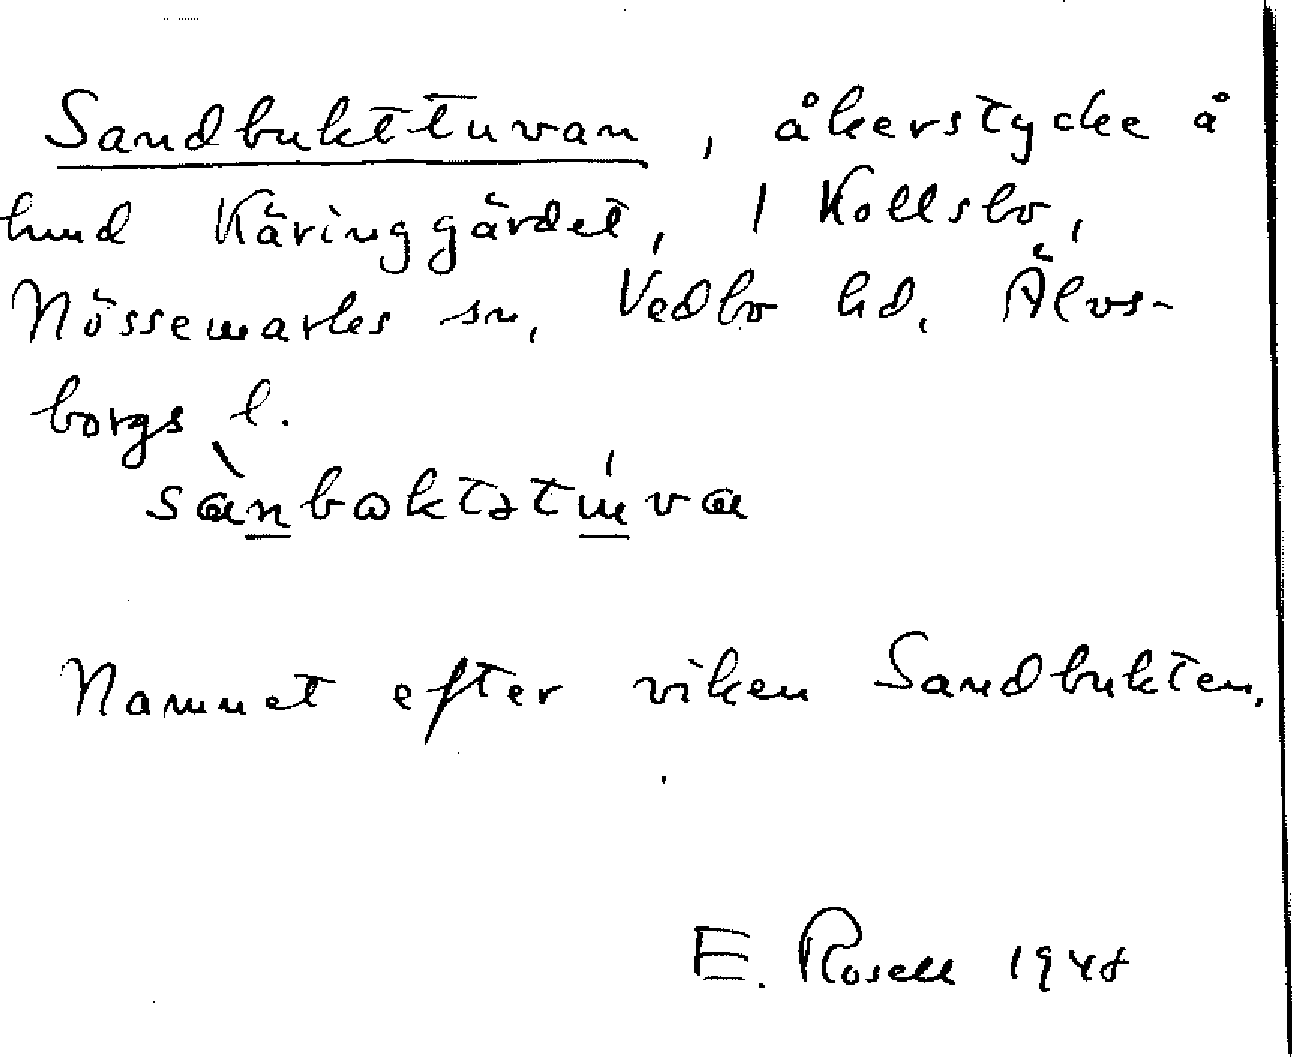 Sandbukttuvan, åkerstycke å
lund Käringgärdet, 1 Kollsbo,
Nössemarks sn, Vedbo hd, Älvs-
borgs l.
Namnet efter viken Sandbukten.
E. Rosell 1948